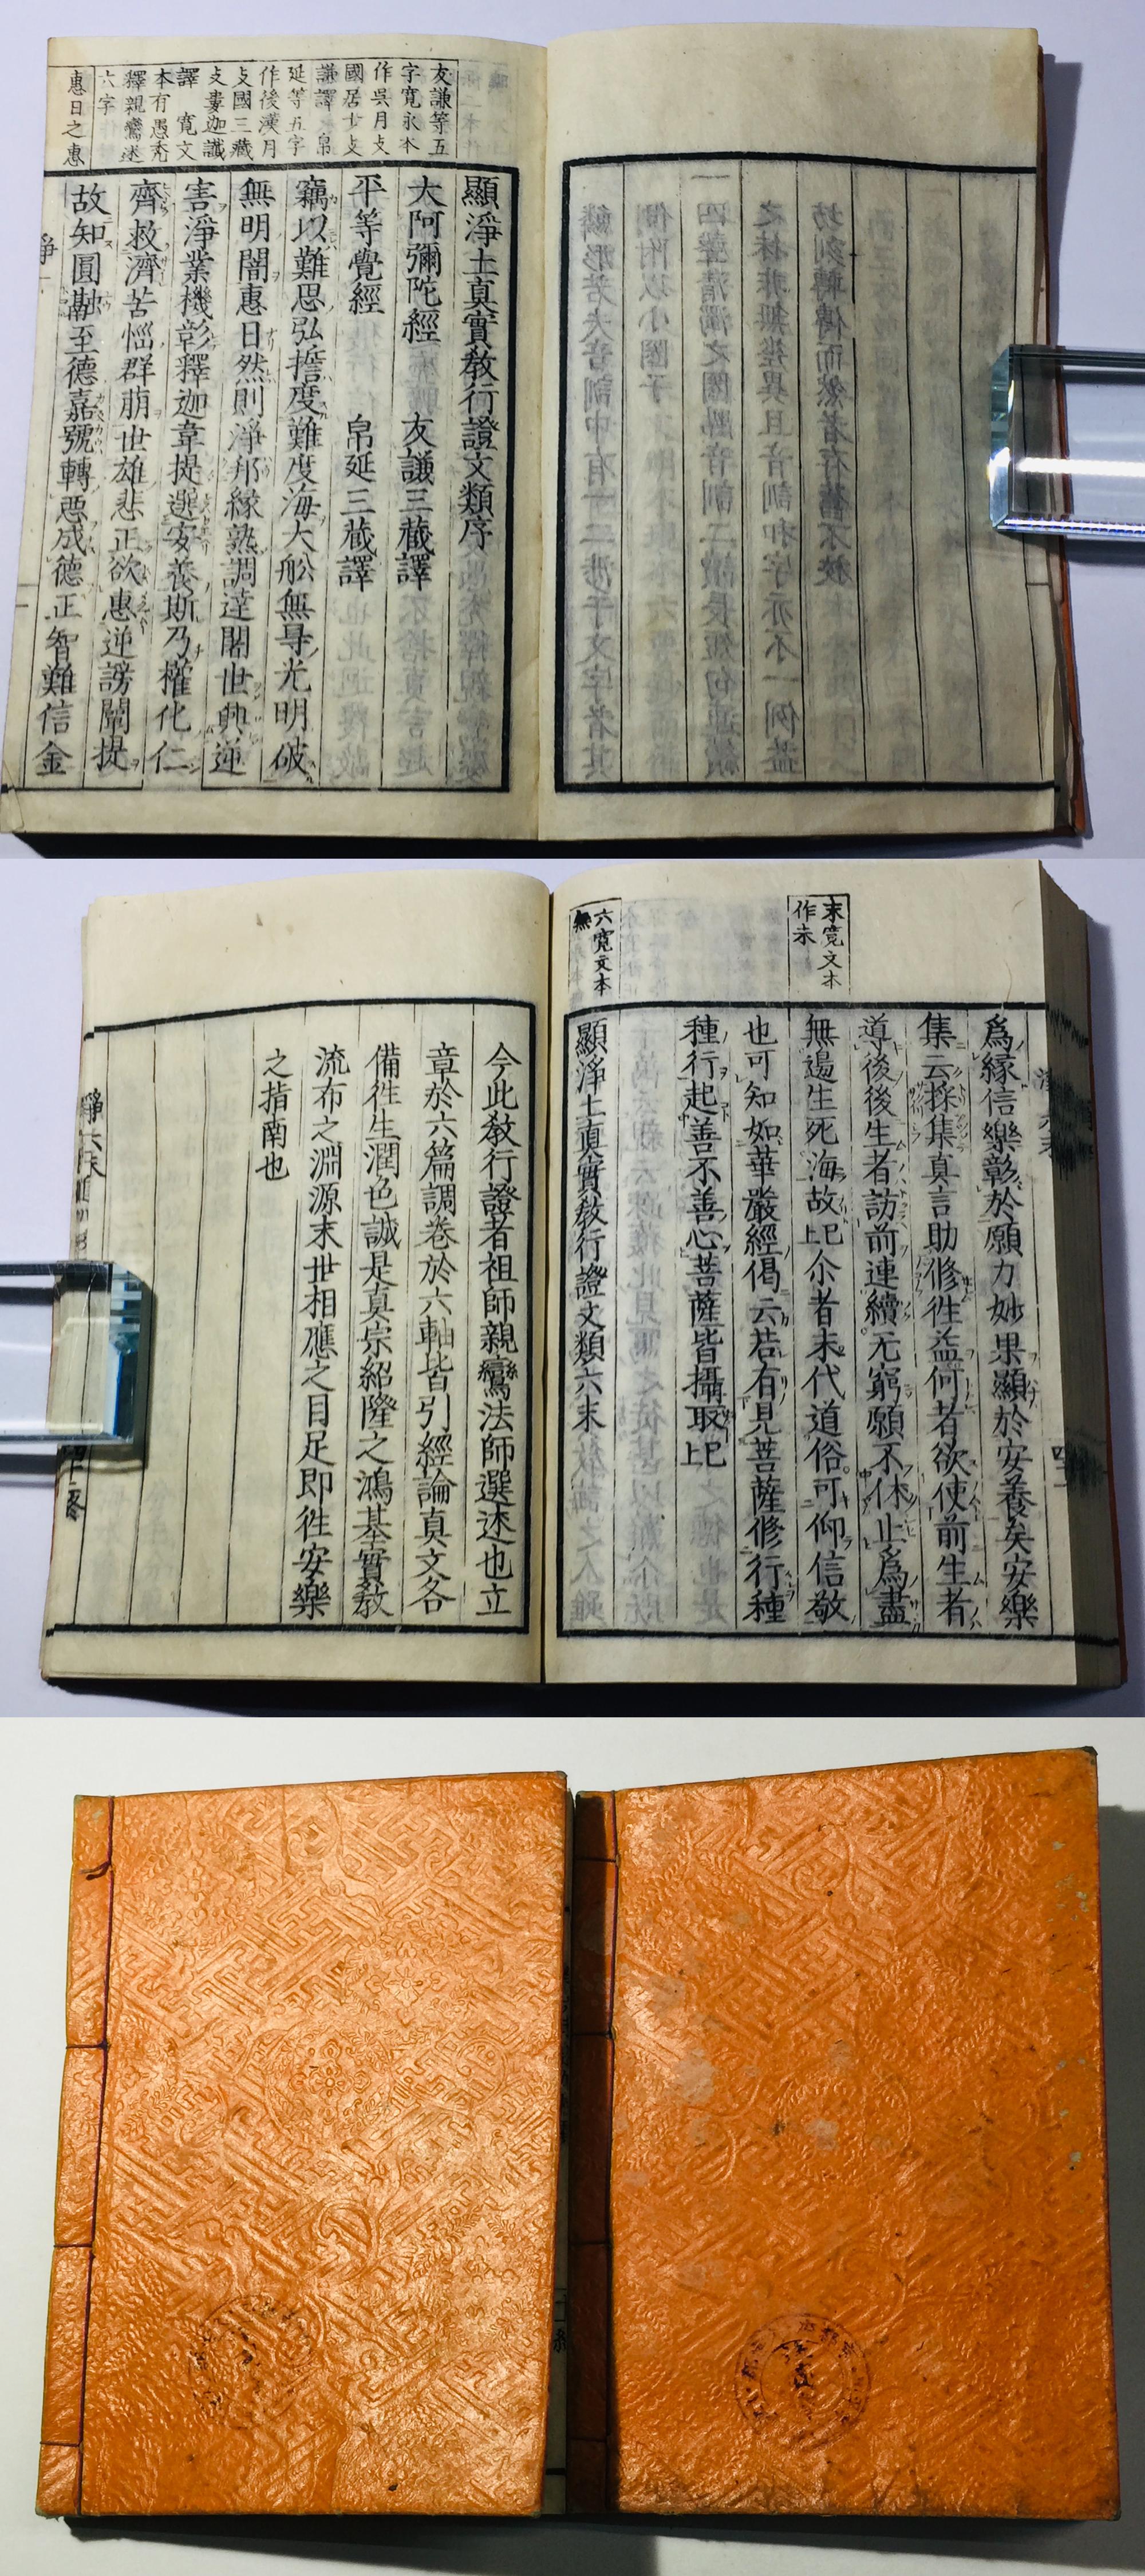 顯淨土真實教行證文類序
大阿彌陀經　友謙三藏譯
平等覺經　帛延三藏譯
竊以難思弘誓度難度海大舩無㝵光明破
無明闇惠日然則淨邦縁熟調達闍世興逆
害淨業機彰釋迦韋提選安養斯乃權化仁
齊救濟苦惱群萠世雄悲正欲惠逆謗闡提
故知圓融至德嘉號轉悪成德正智難信金
友謙等五
字寛永本
作呉月支
國居士支
謙譯　帛
延等五字
作後漢月
支國三藏
支婁迦讖
譯　寛文
本有愚禿
釋親鸞述
六字
惠日之惠
爲縁信樂彰於願力妙果顯於安養矣安樂
集云採集真言助修徃益何者欲使前生者
導後後生者訪前連續无窮願不休止爲盡
無邊生死海故已上尒者末代道俗可仰信敬
也可知如華嚴經偈云若有見菩薩修行種
種行起善不善心菩薩皆攝取已上
顯淨土真實教行證文類六末
末寛文本
作未
六寛文本
無
今此教行證者祖師親鸞法師選述也立
章於六篇調卷於六軸皆引經論真文各
備徃生潤色誠是真宗紹隆之鴻基實教
流布之淵源末世相應之目足即徃安樂
之指南也